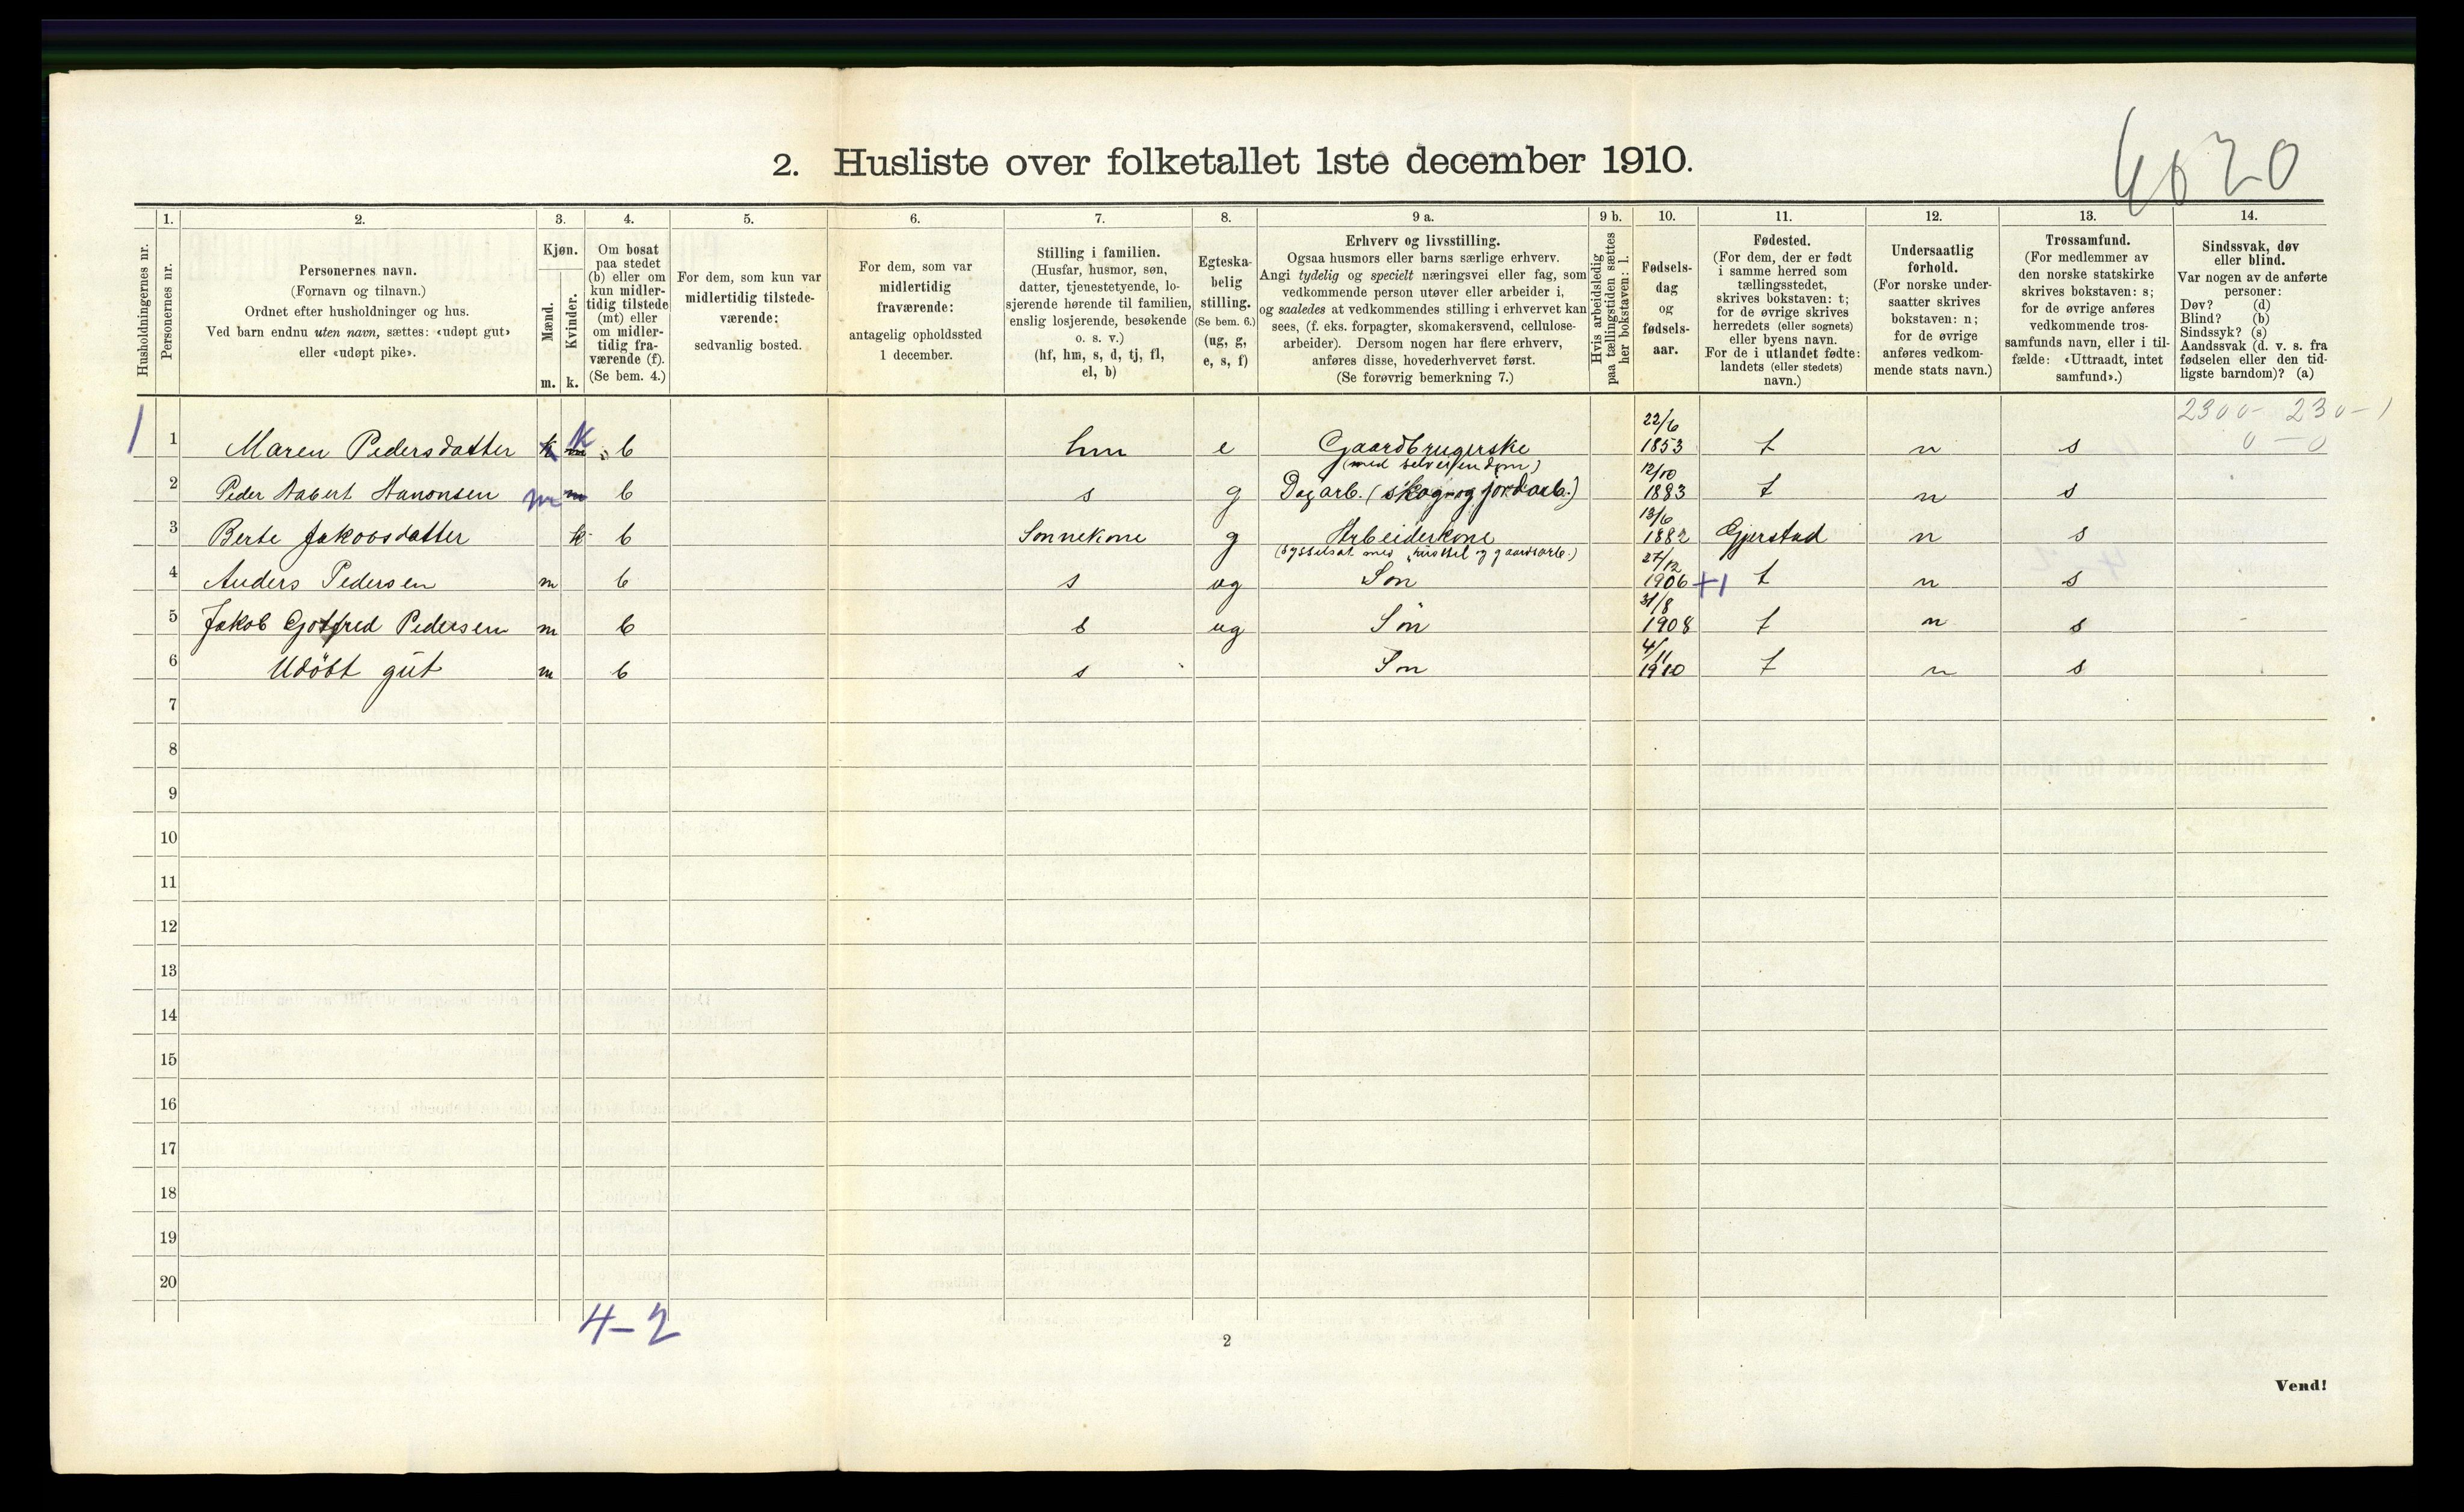 2. Husliste over folketallet 1ste december 1910.
1. 2. 3. 4. 5. 6. 7. 8. 9 a. 9 b. 10. 11. 12. 13. 14.
Husholdningernes nr.
Personernes nr.
Personernes navn.
(Fornavn og tilnavn.)
Ordnet efter husholdninger og hus.
Ved barn endnu uten navn, sættes: «udøpt gut»
eller «udøpt pike».
Kjøn.
Mænd.
Kvinder.
m. k.
Om bosat
paa stedet
(b) eller om
kun midler-
tidig tilstede
(mt) eller
om midler-
tidig fra-
værende (f).
(Se bem. 4.)
For dem, som kun var
midlertidig tilstede-
værende:
sedvanlig bosted.
For dem, som var
midlertidig
fraværende:
antagelig opholdssted
1 december.
Stilling i familien.
(Husfar, husmor, søn,
datter, tjenestetyende, lo-
sjerende hørende til familien,
enslig losjerende, besøkende
o. s. v.)
(hf, hm, s, d, tj, fl,
el, b)
Egteska-
belig
stilling.
(Se bem. 6.)
(ug, g,
e, s, f)
Erhverv og livsstilling.
Ogsaa husmors eller barns særlige erhverv.
Angi tydelig og specielt næringsvei eller fag, som
vedkommende person utøver eller arbeider i,
og saaledes at vedkommendes stilling i erhvervet kan
sees, (f. eks. forpagter, skomakersvend, cellulose-
arbeider). Dersom nogen har flere erhverv,
anføres disse, hovederhvervet først.
(Se forøvrig bemerkning 7.)
Hvis arbeidsledig
paa tællingstiden sættes
her bokstaven: l.
Fødsels-
dag
og
fødsels-
aar.
Fødested.
(For dem, der er født
i samme herred som
tællingsstedet,
skrives bokstaven: t;
for de øvrige skrives
herredets (eller sognets)
eller byens navn.
For de i utlandet fødte:
landets (eller stedets)
navn.)
Undersaatlig
forhold.
(For norske under-
saatter skrives
bokstaven: n;
for de øvrige
anføres vedkom-
mende stats navn.)
Trossamfund.
(For medlemmer av
den norske statskirke
skrives bokstaven: s;
for de øvrige anføres
vedkommende tros-
samfunds navn, eller i til-
fælde: «Uttraadt, intet
samfund».)
Sindssvak, døv
eller blind.
Var nogen av de anførte
personer:
Døv? (d)
Blind? (b)
Sindssyk? (s)
Aandssvak (d. v. s. fra
fødselen eller den tid-
ligste barndom)? (a)
2300 - 230 - 1
0 - 0
1 1 Maren Pedersdatter k b hm e Gaardbrugerske (med selveiendom) 22/6 1853 t n s
2 m b s g Dagarb. (skog og jordarb.) 12/10 1883 t n s
3 Berte Jakobsdatter k b Sønnekone g Arbeiderkone 13/6 1882 Gjerstad n s
4 Anders Pedersen m b s ug Søn 27/12 1906 +1 t n s
5 Jakob Gotfred Pedersen m b s ug Søn 31/8 1908 t n s
6 Udöbt gut m b s Søn 4/11 1910 t n s
7
8
9
10
11
12
13
14
15
16
17
18
19
20
4-2
2
Vend!